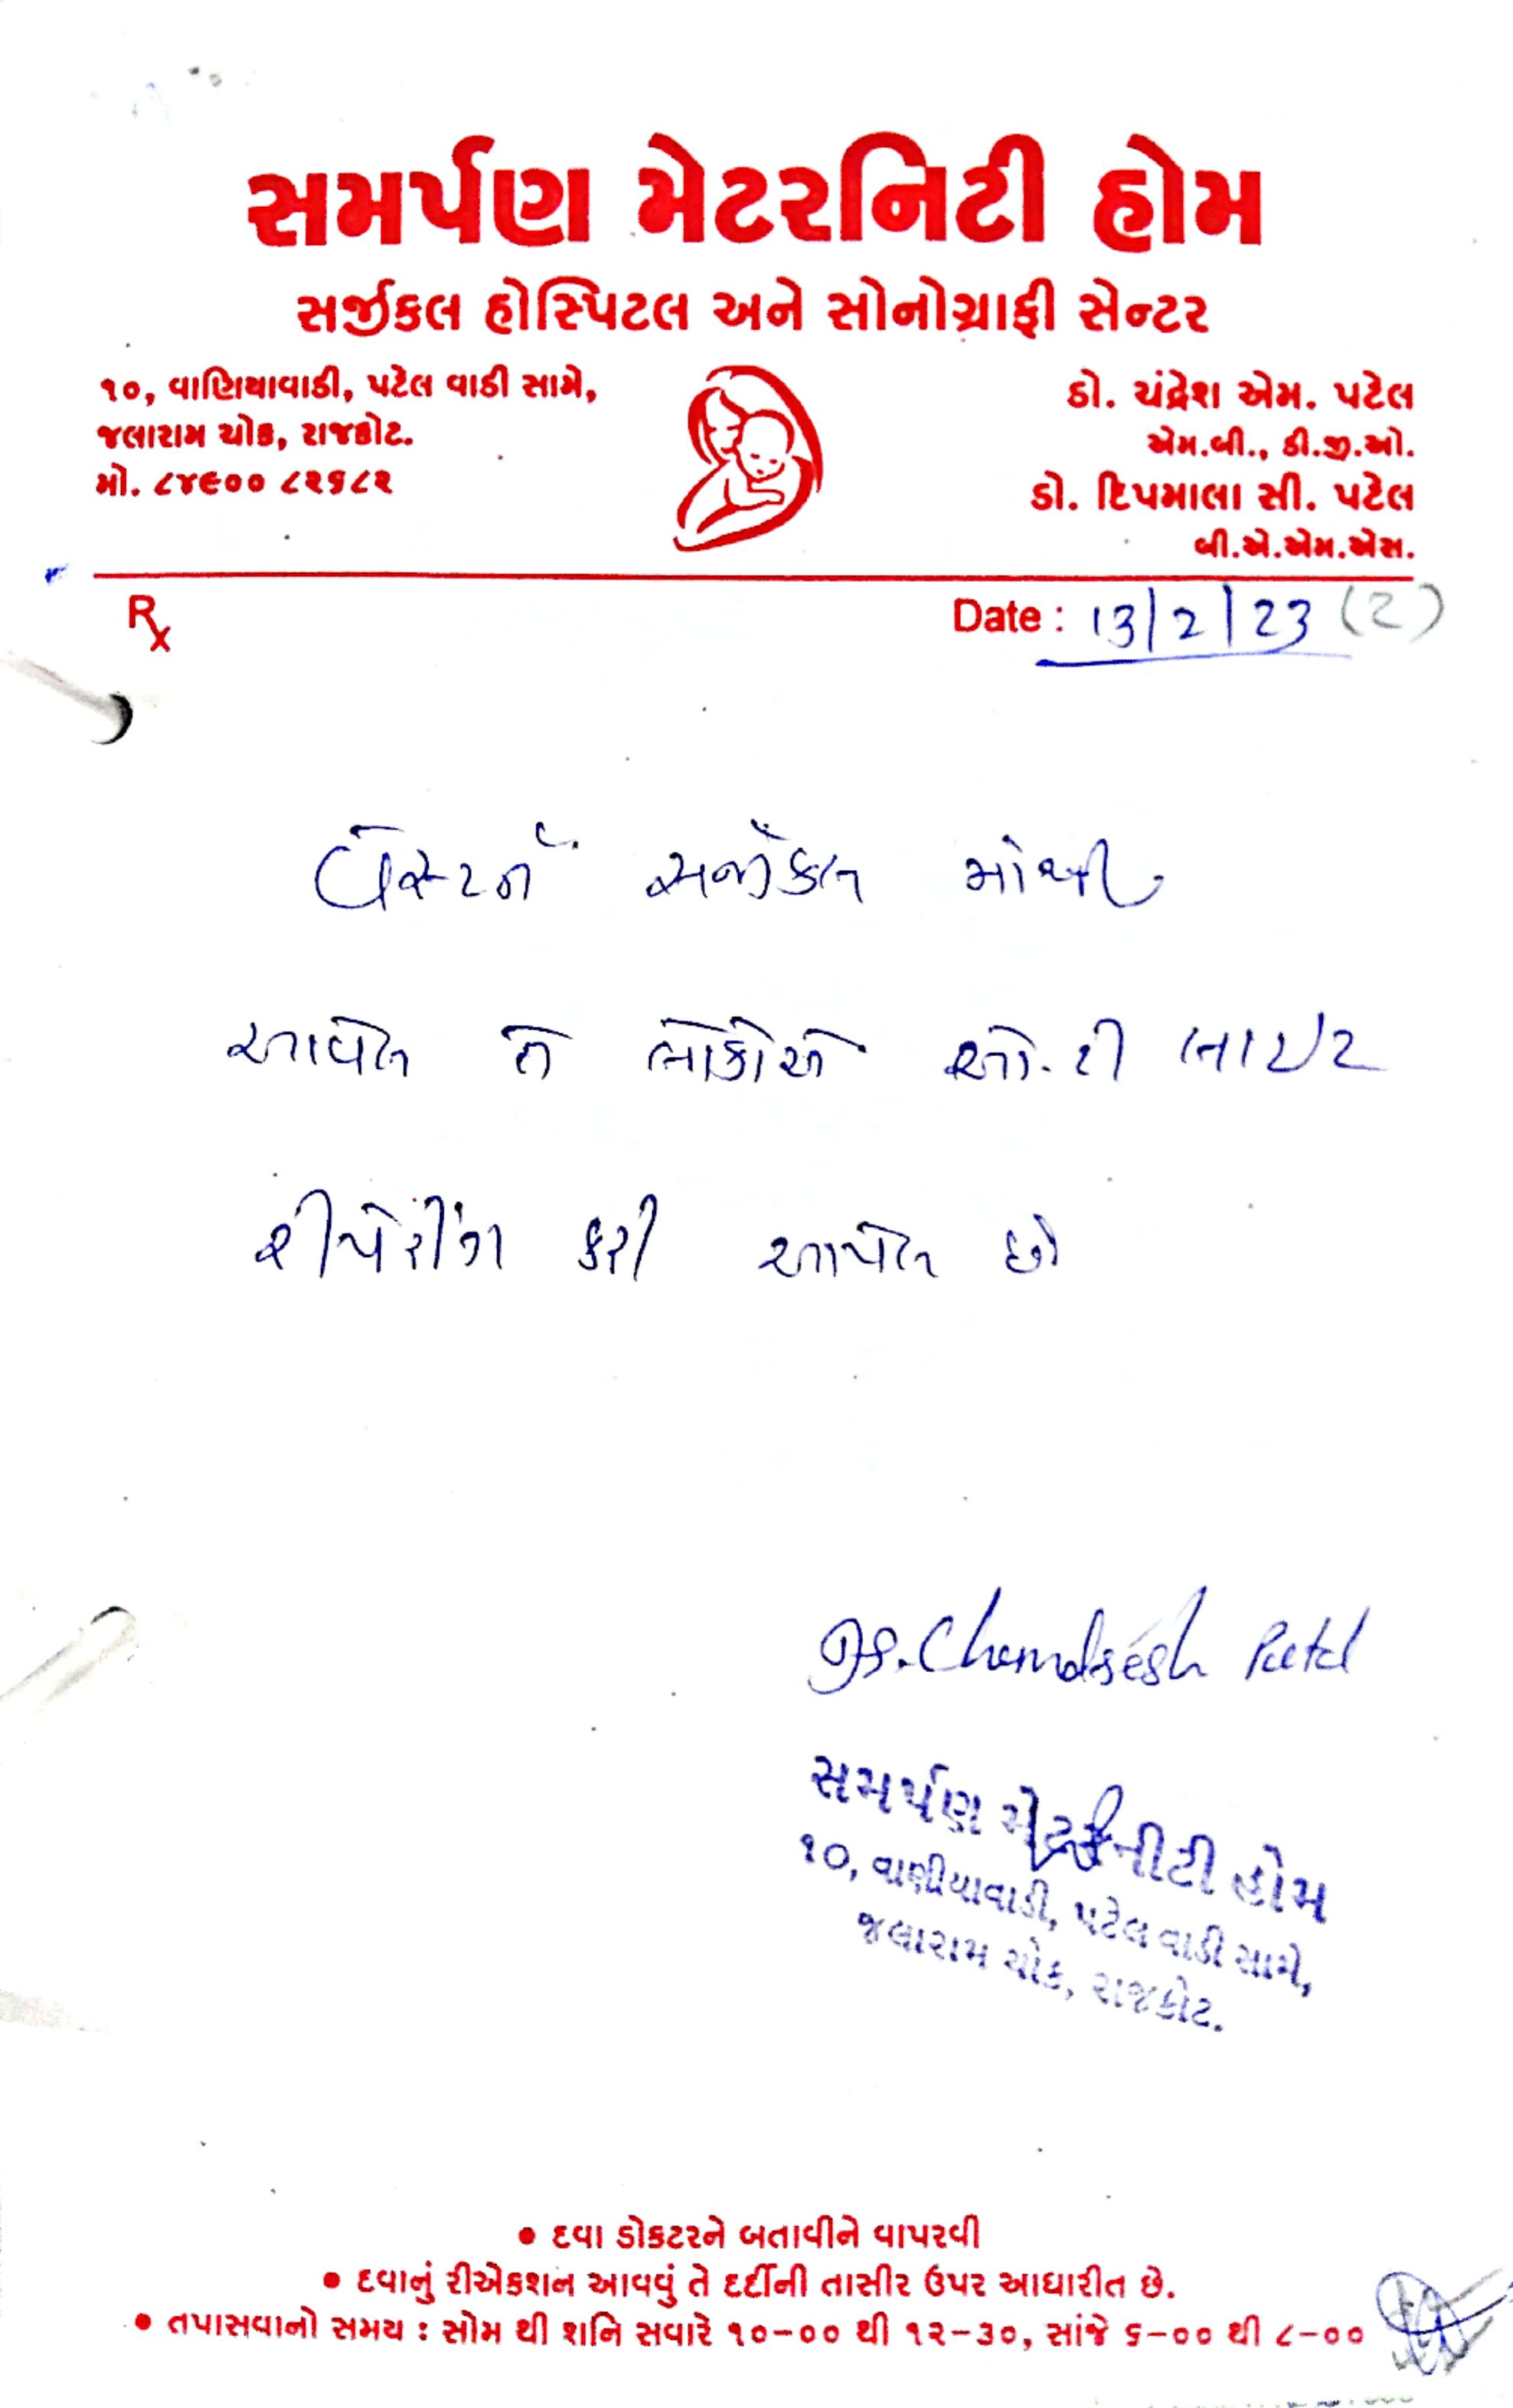 સમર્પણ મેટરનિટી હોમ
સર્જીકલ હોસ્પિટલ અને સોનોગ્રાફી સેન્ટર
૧૦, વાણિયાવાડી, પટેલ વાડી સામે,
જલારામ ચોક, રાજકોટ.
મો. ૮૪૯૦૦ ૮૨૬૮૨
ડો. ચંદ્રેશ એમ. પટેલ
એમ.બી., ડી.જી.ઓ.
ડો. દિપમાલા સી. પટેલ
બી.એ.એમ.એસ.
Rx
Date : 13/2/23 (2)
વેસ્ટર્ન સર્જીકલ માંથી
આવેલ તે લોકોએ ઓ.ટી લાઇટ
રીપેરીંગ કરી આપેલ છે
Dr. Chandresh Patel
સમર્પણ મેટરનીટી હોમ
૧૦, વાણીયાવાડી, પટેલ વાડી સામે,
જલારામ ચોક, રાજકોટ.
• દવા ડોકટરને બતાવીને વાપરવી
• દવાનું રીએકશન આવવું તે દર્દીની તાસીર ઉપર આધારીત છે.
• તપાસવાનો સમય : સોમ થી શનિ સવારે ૧૦-૦૦ થી ૧૨-૩૦, સાંજે ૬-૦૦ થી ૮-૦૦